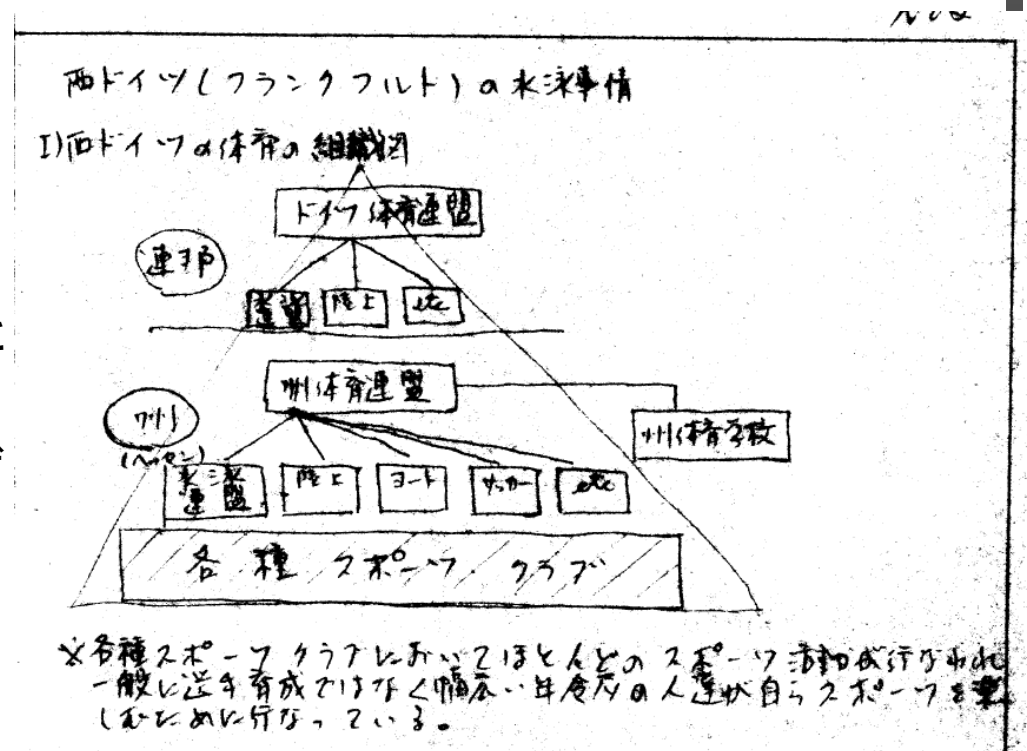 西ドイツ(フランクフルト)の水泳事情
I)西ドイツの体育の組織図
ドイツ体育連盟
連邦
陸上
etc
州体育連盟
州
(ヘッセン)
州体育学校
水泳
連盟
陸上
ヨート
サッカー
etc
各種スポーツクラブ
※各種スポーツクラブにおいてほとんどのスポーツ活動が行なわれ
一般に選手育成ではなく幅広い年令层の人達が自らスポーツを楽
しむために行なっている。